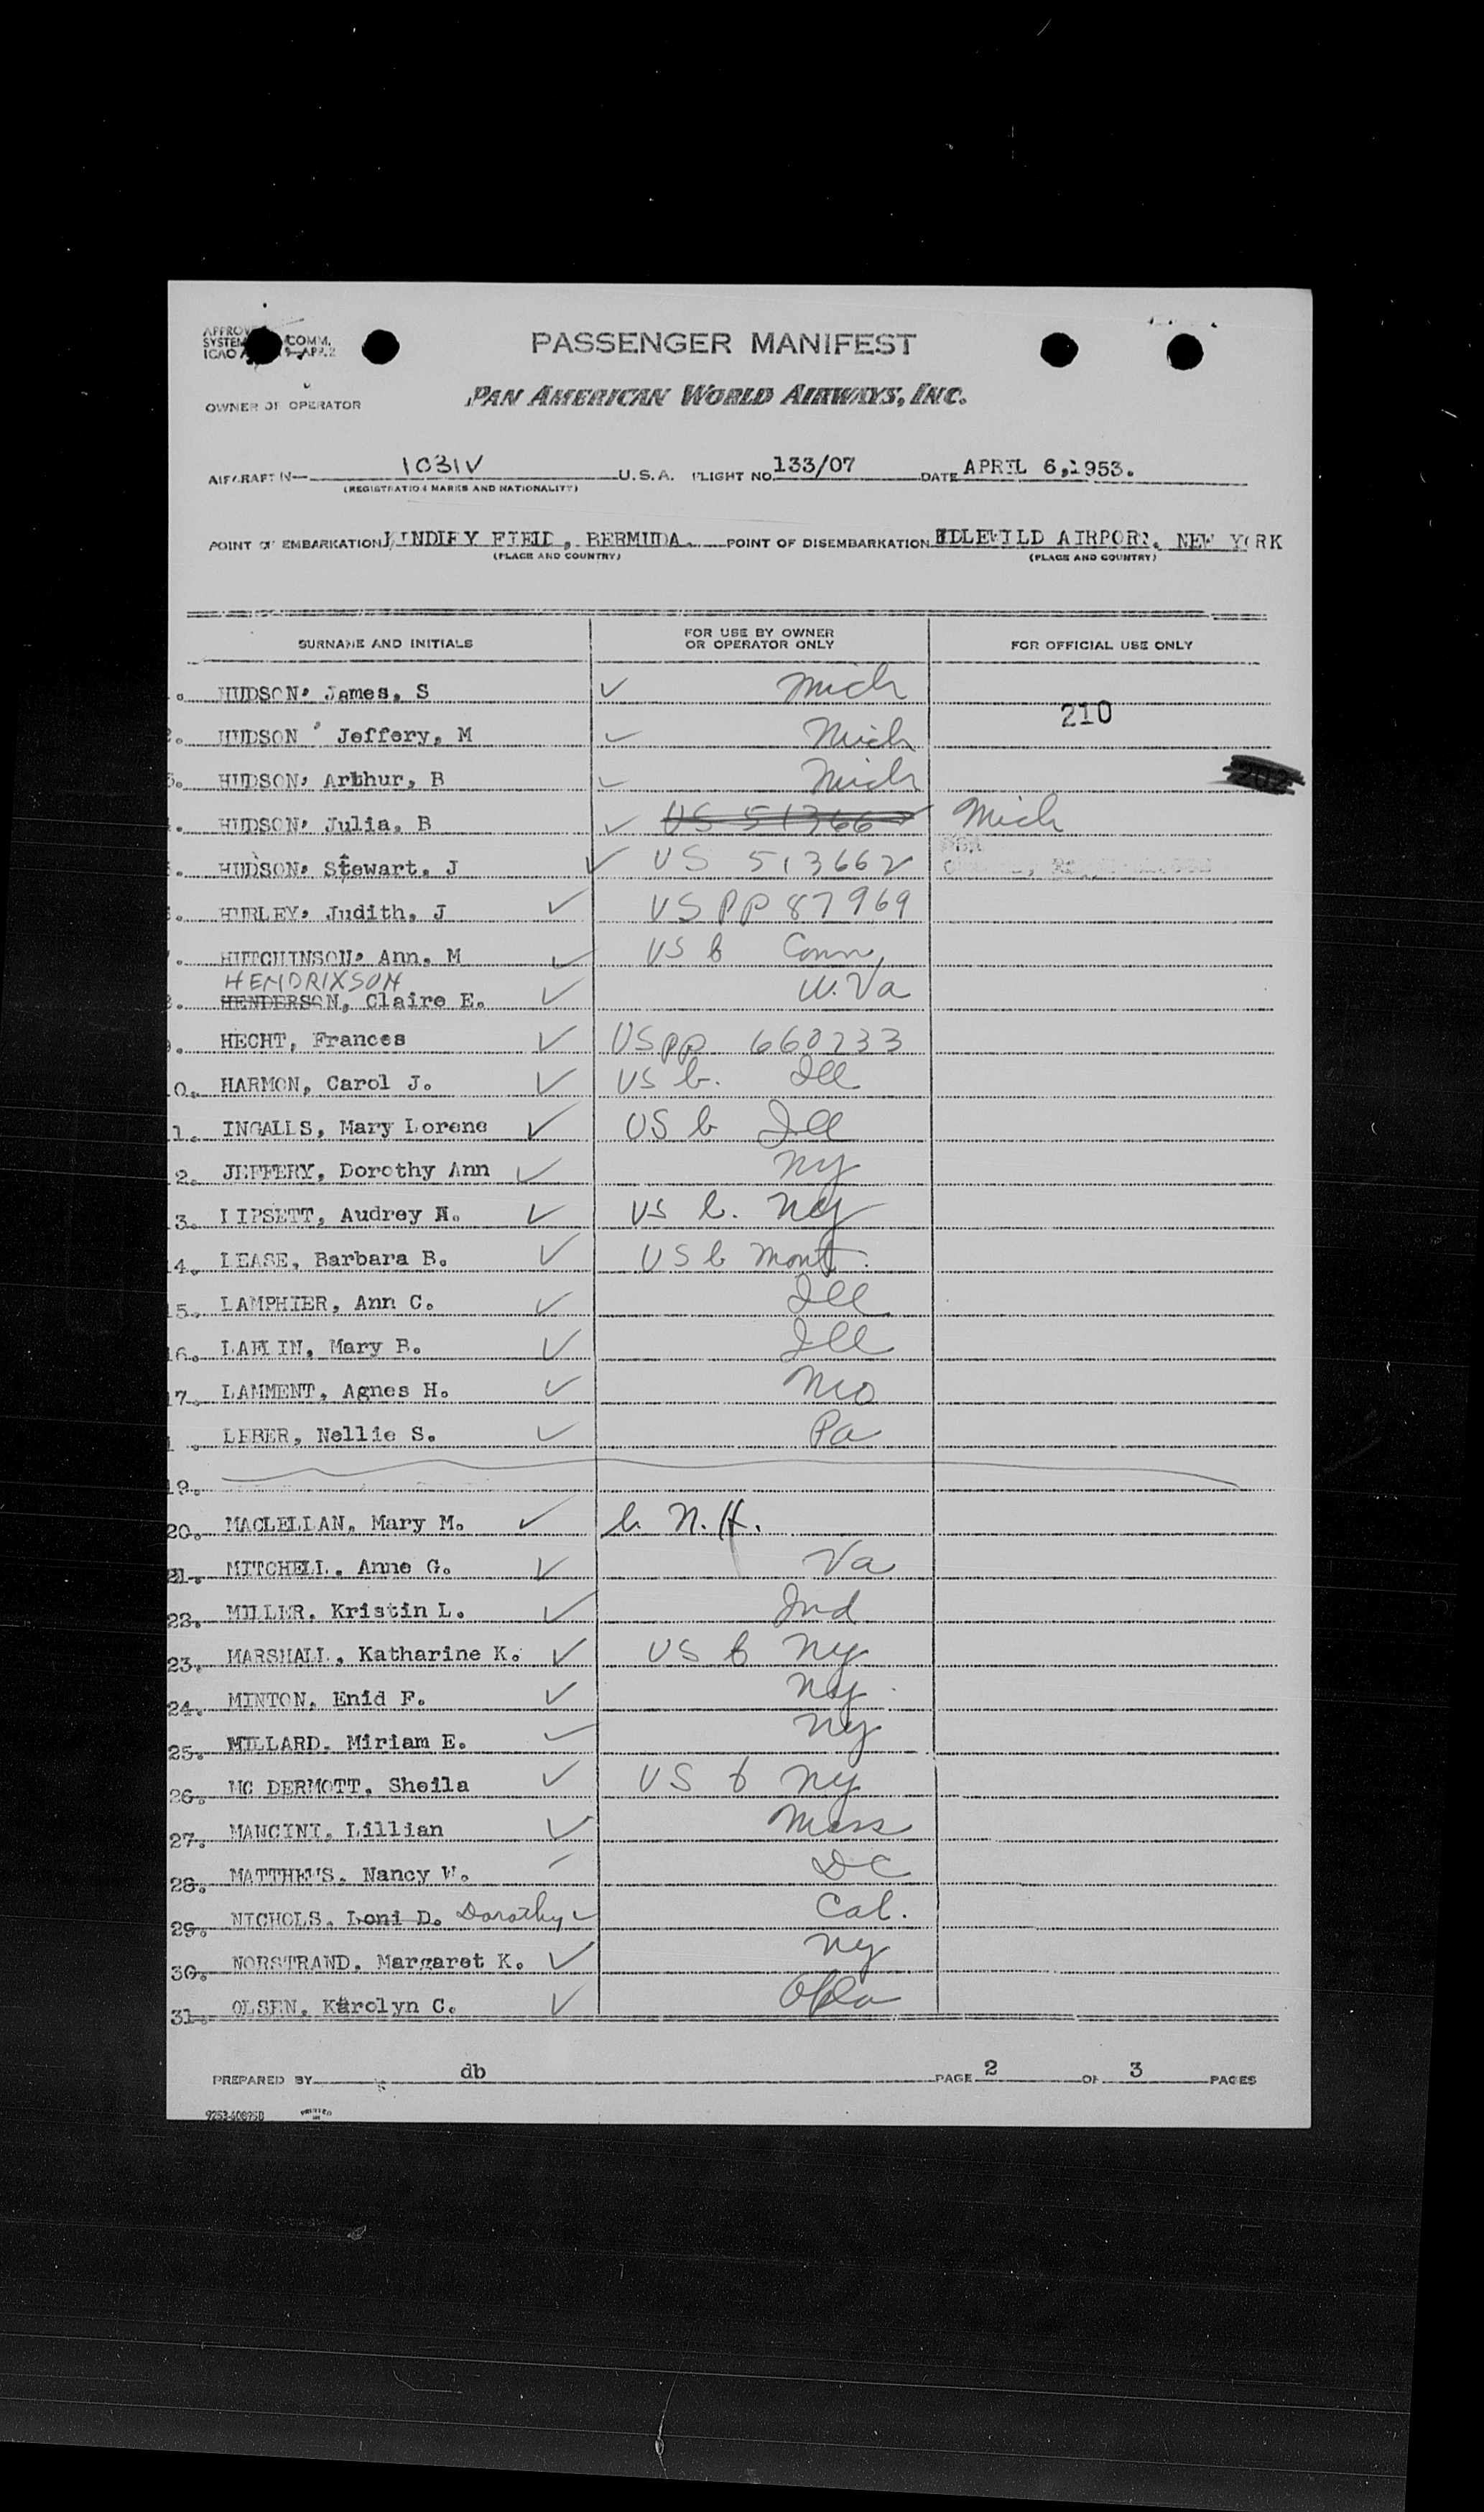 PASSENGER MANIFEST
COMM.
OWNER OF OPERATOR PAN AMERICAN WORLD AIRWAYS, INC.
AIRCRAFT N— 1031V U.S.A. FLIGHT NO. 133/07 DATE APRIL 6, 1953.
(REGISTRATION MARKS AND NATIONALITY)
POINT OF EMBARKATION KINDLEY FIELD, BERMUDA. POINT OF DISEMBARKATION IDLEWILD AIRPORT, NEW YORK
(PLACE AND COUNTRY) (PLACE AND COUNTRY)
SURNAME AND INITIALS FOR USE BY OWNER OR OPERATOR ONLY FOR OFFICIAL USE ONLY
HUDSON, James, S ✓ Mich
210
2. HUDSON, Jeffery, M ✓ Mich
3. HUDSON, Arthur, B ✓ Mich
202
HUDSON, Julia, B ✓ US 513662 Mich
HUDSON, Stewart, J ✓ US 513662
HURLEY, Judith, J ✓ US PP 87969
HUTCHINSON, Ann, M ✓ US b Conn,
HENDRIXSON
HENDERSON, Claire E. ✓ W. Va
HECHT, Frances ✓ US pp 660233
0. HARMON, Carol J. ✓ US b. Ill
1. INGALLS, Mary Lorene ✓ US b Ill
2. JEFFERY, Dorothy Ann ✓ NY
3. LIPSETT, Audrey N. ✓ US b. NY
4. LEASE, Barbara B. ✓ US b Mont.
5. LAMPHIER, Ann C. ✓ Ill
16. Mary B. ✓ Ill
17. LAMMENT, Agnes H. ✓ Mo
1 . LEBER, Nellie S. ✓ Pa
19.
20. MACLELLAN, Mary M. ✓ b N.H.
21. MITCHELL, Anne G. ✓ Va
22. MILLER, Kristin L. ✓ Ind
23. MARSHALL, Katharine K. ✓ US b NY
24. MINTON, Enid F. ✓ NY
25. MILLARD, Miriam E. ✓ NY
26. MC DERMOTT, Sheila ✓ US b NY
27. MANCINI, Lillian ✓ Mass
28. MATTHEWS, Nancy W. ✓ DC
29. NICHOLS, Loni D. Dorothy ✓ Cal.
30. NORSTRAND, Margaret K. ✓ NY
31. OLSEN, Karolyn C. ✓ Okla
PREPARED BY db PAGE 2 OF 3 PAGES